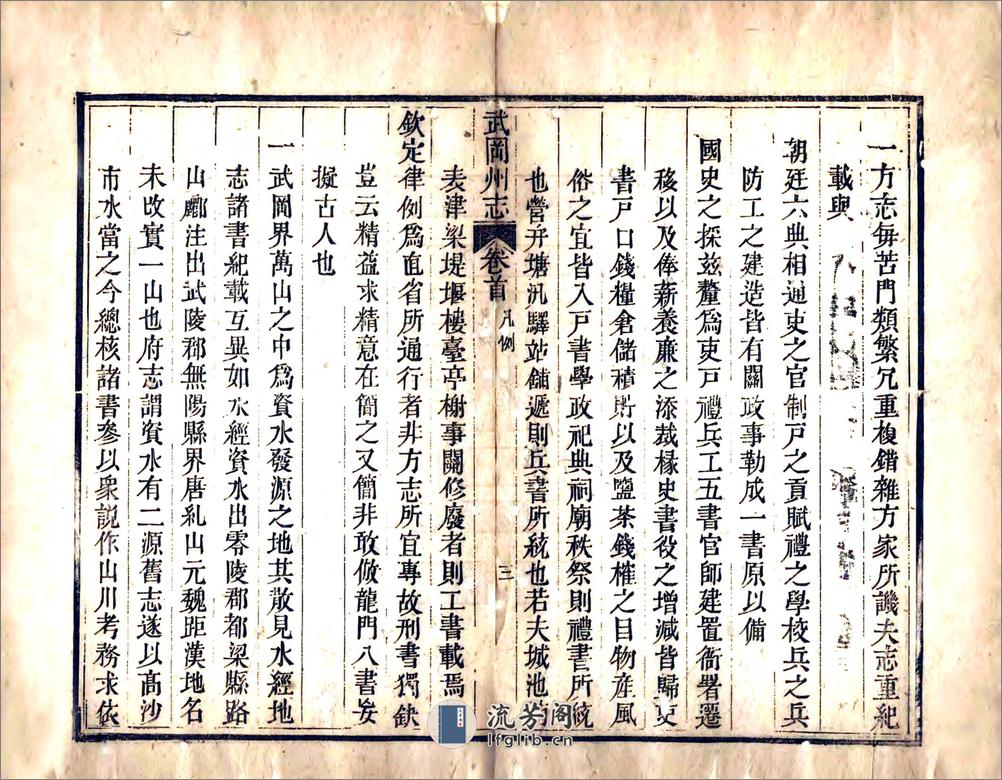 一方志每苦門類繁冗重複錯雜方家所譏夫志重紀
載與
朝廷六典相通吏之官制戸之貢賦禮之學校兵之兵
防工之建造皆有關政事勒成一書原以備
國史之採兹釐爲吏戸禮兵工五書官師建置衙署遷
移以及俸薪養廉之添裁椽史書役之增減皆歸吏
書戸口錢糧倉儲積貯以及鹽茶錢榷之目物産風
俗之宜皆入戸書學政祀典祠廟秩祭則禮書所統
也營弁塘汛驛站舖遞則兵書所統也若夫城池
武岡州志 卷首 凡例 三
表津梁堤堰樓臺亭榭事關修廢者則工書載焉
欽定律例爲直省所通行者非方志所宜專故刑書獨缺
豈云精益求精意在簡之又簡非敢倣龍門八書妄
擬古人也
一武岡界萬山之中爲資水發源之地其散見水經地
志諸書紀載互異如水經資水出零陵郡都梁縣路
山酈注出武陵郡無陽縣界唐糺山元魏距漢地名
未改實一山也府志謂資水有二源舊志遂以高沙
市水當之今總核諸書參以衆說作山川考務求依
流芳阁
lfglib.cn